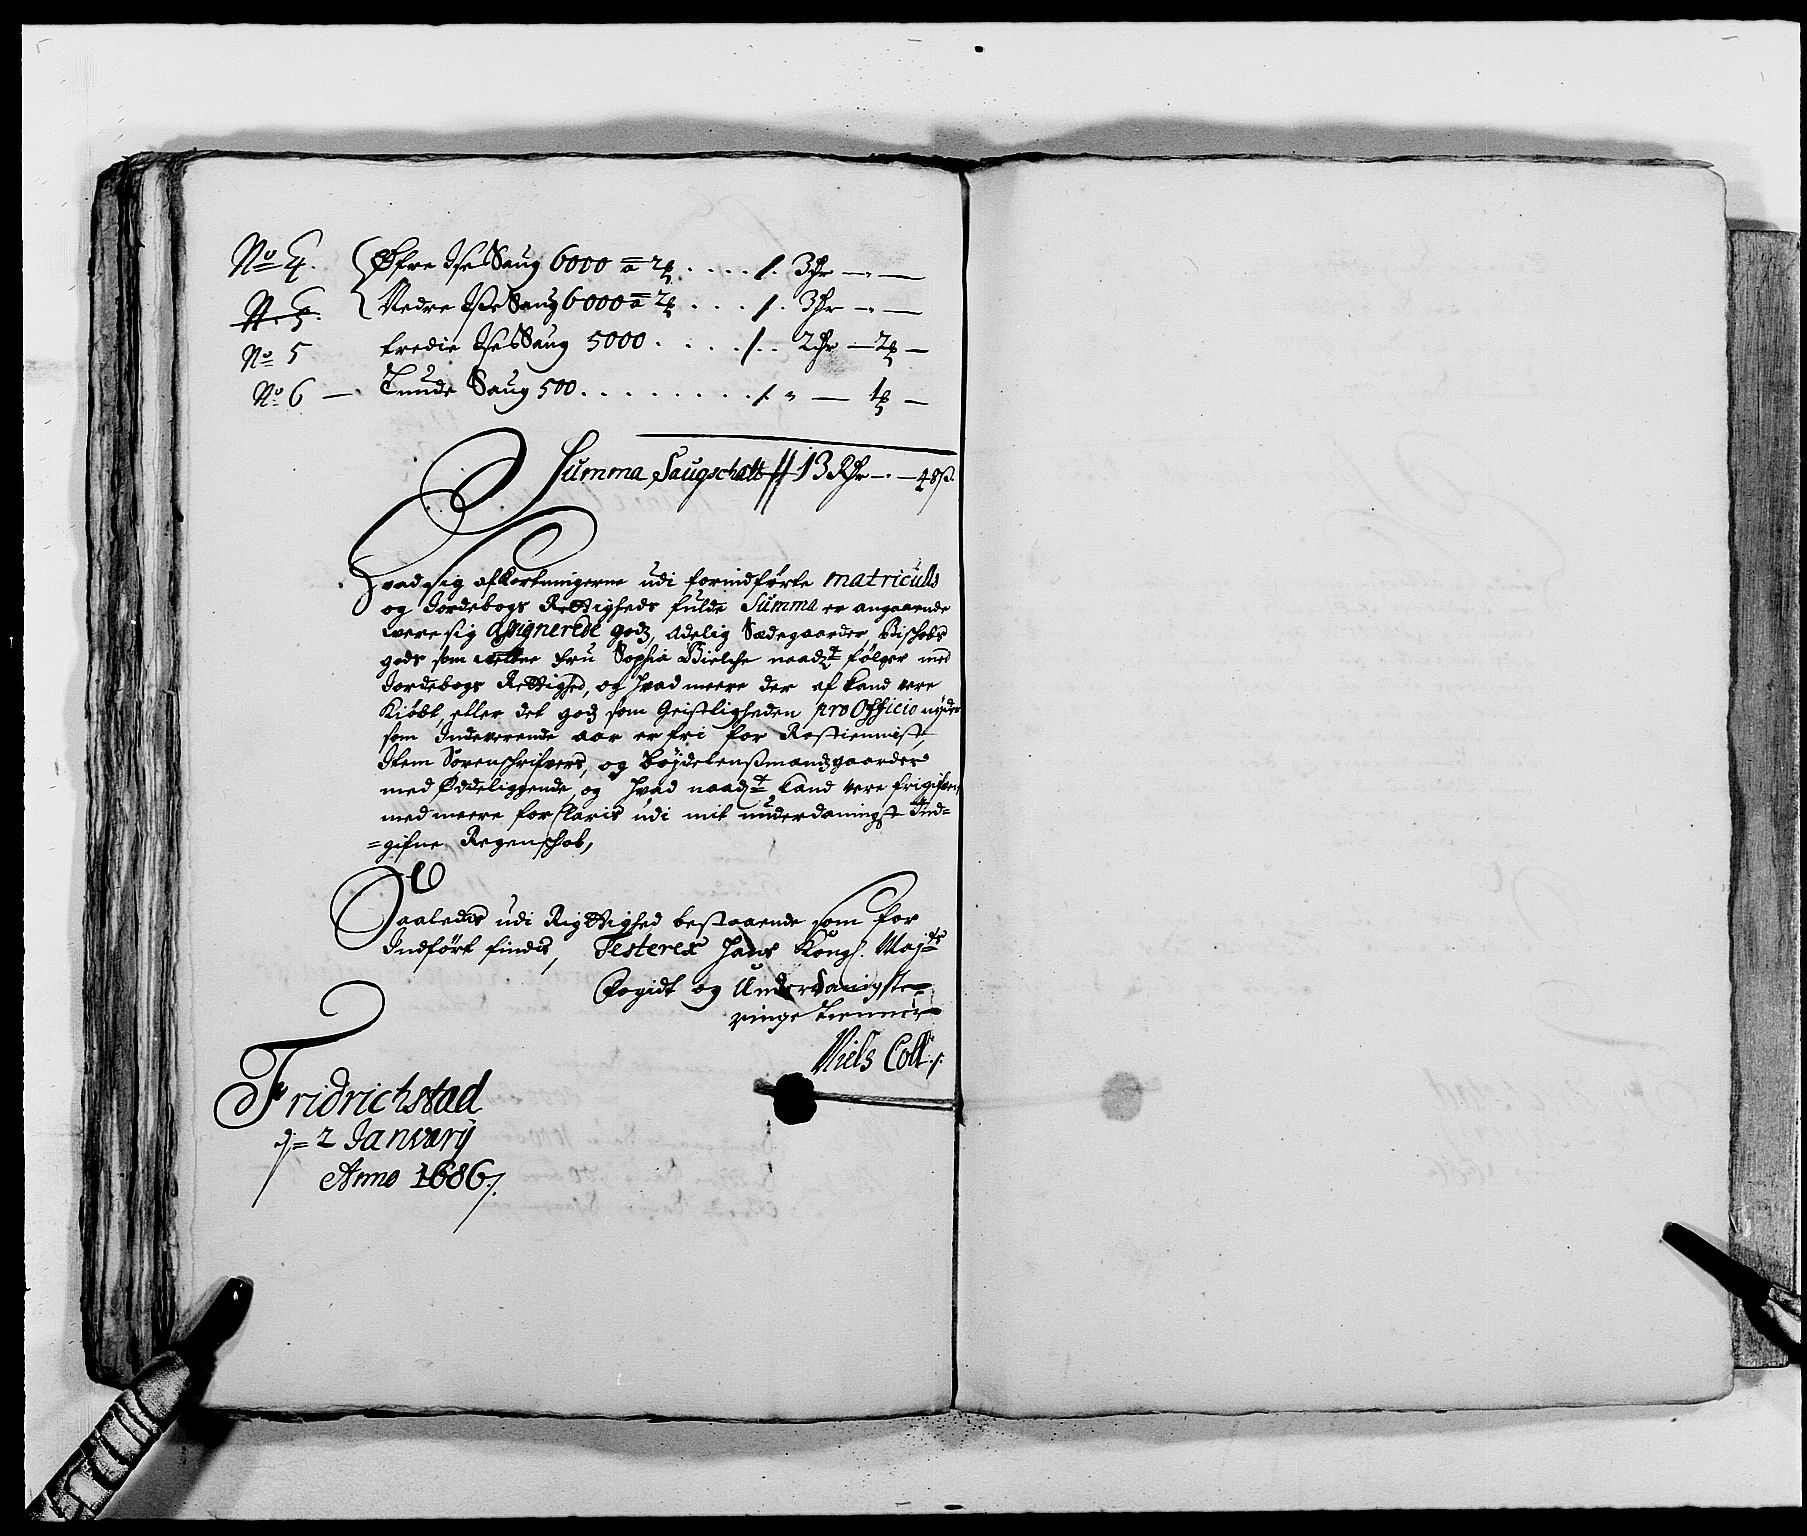 No 4. Øfre Ise Saug 6000 a 2 . . . . /. 3 Rdr — " —
N. 5. Nedre Ise Saug 6000 a 2 . . . /. 3 Rdr — " —
No 5 Tredie Ise Saug 5000 . . . . /. . 2 Rdr — 2 —
No 6 — Tunde Saug 500 . . . . . . . . . /. " — 1 —
Summa Saugschatt // 13 Rdr — . — 48 ß.
Hvad sig afkortningerne udi forindførte matriculs
og Jordebogs Rettigheds fulde Summa er angaaende
were sig Assignerede godz, Adelig Sædegaarder, Bischobs
gods som Fru Sophia Bielche naadt følger med
Jordebogs Rettighed, og hvad meere der af kand vere
Kiøbt, eller det godz som Geistligheden pro Officio nyder
som Indeverende aar er fri for Rostienniste,
Item Sorenschrifvers, og Bøjdelenßmandzgaarder
med Ødeliggende, og hvad naadt kand vere frigifven,
med meere forklaris udi mit underdaningst Ind=
=gifne Regenschab,
Saaledis udi Rigttighed bestaaende som for
Indført findis, Testerer Hans Kongl. Majts
Fogidt og Underdanigste
ringe tienner
Niels Coll /.
Fridrichstad
d= 2 January
Anno 1686 /.